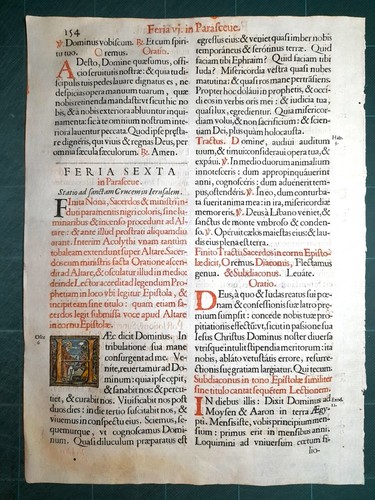 154
Feria vj. in Parasceue.
℣. Dominus vobiscum. ℞. Et cum spiri
tu tuo. Oremus. Oratio.
ADesto, Domine quæsumus, offi-
cio seruitutis nostræ: & quia tu di-
scipulis tuis pedes lauare dignatus es, ne
despicias opera manuum tuarum, quæ
nobis retinenda mandasti: vt sicut hic no
bis, & à nobis exteriora abluuntur inqui
namenta: sic à te omnium nostrum inte
riora lauentur peccata. Quod ipse præsta-
re digneris, qui viuis & regnas Deus, per
omnia sæcula sæculorum. ℞. Amen.
FERIA SEXTA
in Parasceue.
Statio ad sanctam Crucem in Ierusalem.
FInita Nona, Sacerdos & ministri in-
duti paramentis nigri coloris, sine lu-
minaribus & incenso procedunt ad Al-
tare: & ante illud prostrati aliquamdiu
orant. Interim Acolythi vnam tantùm
tobaleam extendunt super Altare. Sacer-
dos cum ministris facta Oratione ascen-
dit ad Altare, & osculatur illud in medio:
deinde Lector accedit ad legendum Pro-
phetiam in loco vbi legitur Epistola, &
incipit eam sine titulo: quam etiam Sa-
cerdos legit submissa voce apud Altare
in cornu Epistolæ.
HÆc dicit Dominus. In
tribulatione sua manè
consurgent ad me. Ve-
nite, reuertamur ad Do-
minum: quia ipse cœpit,
& sanabit nos: percu-
tiet, & curabit nos. Viuificabit nos post
duos dies: in die tertio suscitabit nos, &
viuemus in conspectu eius. Sciemus, se-
quemurque, vt cognoscamus Domi-
num. Quasi diluculum præparatus est
egressus eius: & veniet quasi imber nobis
temporaneus & serotinus terræ. Quid
faciam tibi Ephraim? Quid faciam tibi
Iuda? Misericordia vestra quasi nubes
matutina: & quasi ros manè pertransiens.
Propter hoc dolaui in prophetis, & occi-
di eos in verbis oris mei: & iudicia tua,
quasi lux, egredientur. Quia misericor-
diam volui, & non sacrificium: & scien-
tiam Dei, plus quàm holocausta.
Tractus. Domine, audiui auditum
tuum, & timui: consideraui opera tua, &
expaui. ℣. In medio duorum animalium
innotesceris: dum appropinquauerint
anni, cognosceris: dum aduenerit tem-
pus, ostenderis. ℣. In eo, dum conturba-
ta fuerit anima mea: in ira, misericordiæ
memor eris. ℣. Deus à Libano veniet, &
sanctus de monte vmbroso & conden-
so. ℣. Operuit cælos maiestas eius: & lau-
dis eius plena est terra.
Finito Tractu Sacerdos in cornu Episto-
læ dicit, Oremus. Diaconus, Flectamus
genua. & Subdiaconus. Leuate.
Oratio.
DEus, à quo & Iudas reatus sui pœn-
am & confessionis suæ latro præ-
mium sumpsit: concede nobis tuæ pro-
pitiationis effectū: vt, sicut in passione sua
Iesus Christus Dominus noster diuersa
vtrisque intulit stipendia meritorum: ita
nobis, ablato vetustatis errore, resurre-
ctionis suæ gratiam largiatur. Qui tecum.
Subdiaconus in tono Epistolæ similiter
sine titulo cantat sequentem Lectionem.
IN diebus illis: Dixit Dominus ad
Moysen & Aaron in terra Ægy-
pti. Mensis iste, vobis principium men-
sium: primus erit in mensibus anni.
Loquimini ad vniuersum cœtum fi-
lio-